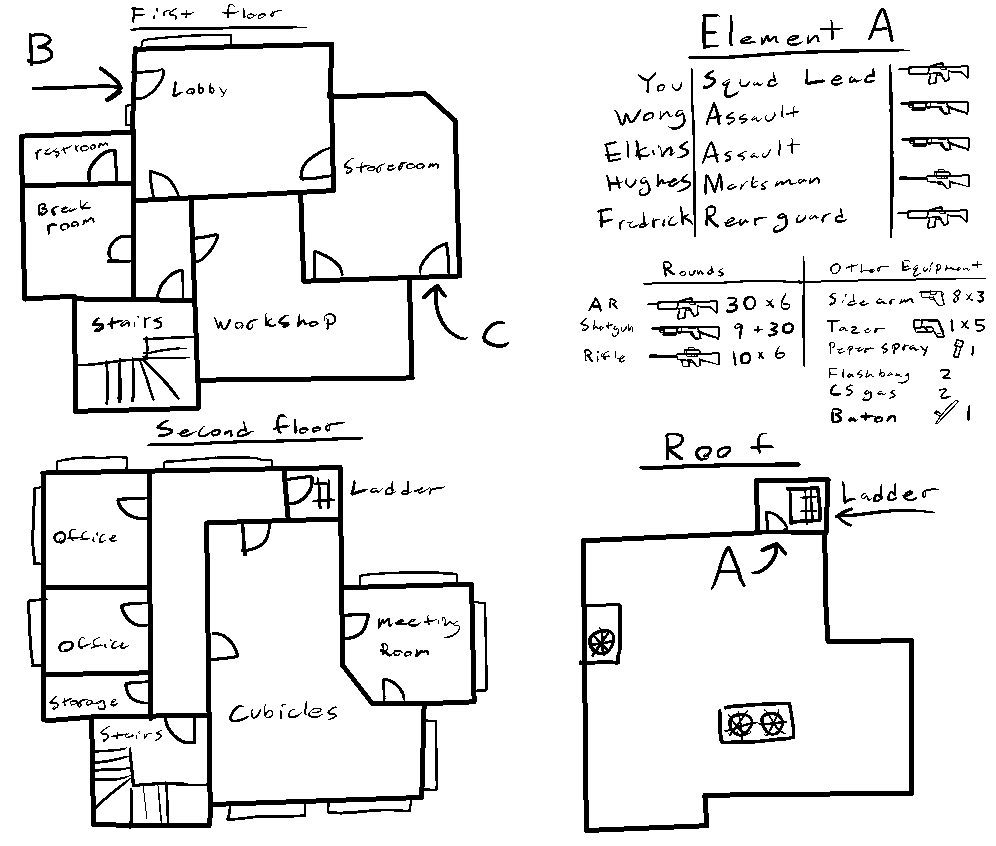 First floor
B
Lobby
restroom
Storeroom
Break
room
Stairs
Workshop
C
Element A
You Squad Lead
Wong Assault
Elkins Assault
Hughes Marksman
Fredrick Rear guard
Rounds
AR 30 x 6
Shotgun 9 + 30
Rifle 10 x 6
Other Equipment
Side arm 8 x 3
Tazer 1 x 5
Peper spray 1
Flashbang 2
CS gas 2
Baton 1
Second floor
Ladder
Office
Office
Meeting
Room
Storage
Cubicles
Stairs
Roof
Ladder
A